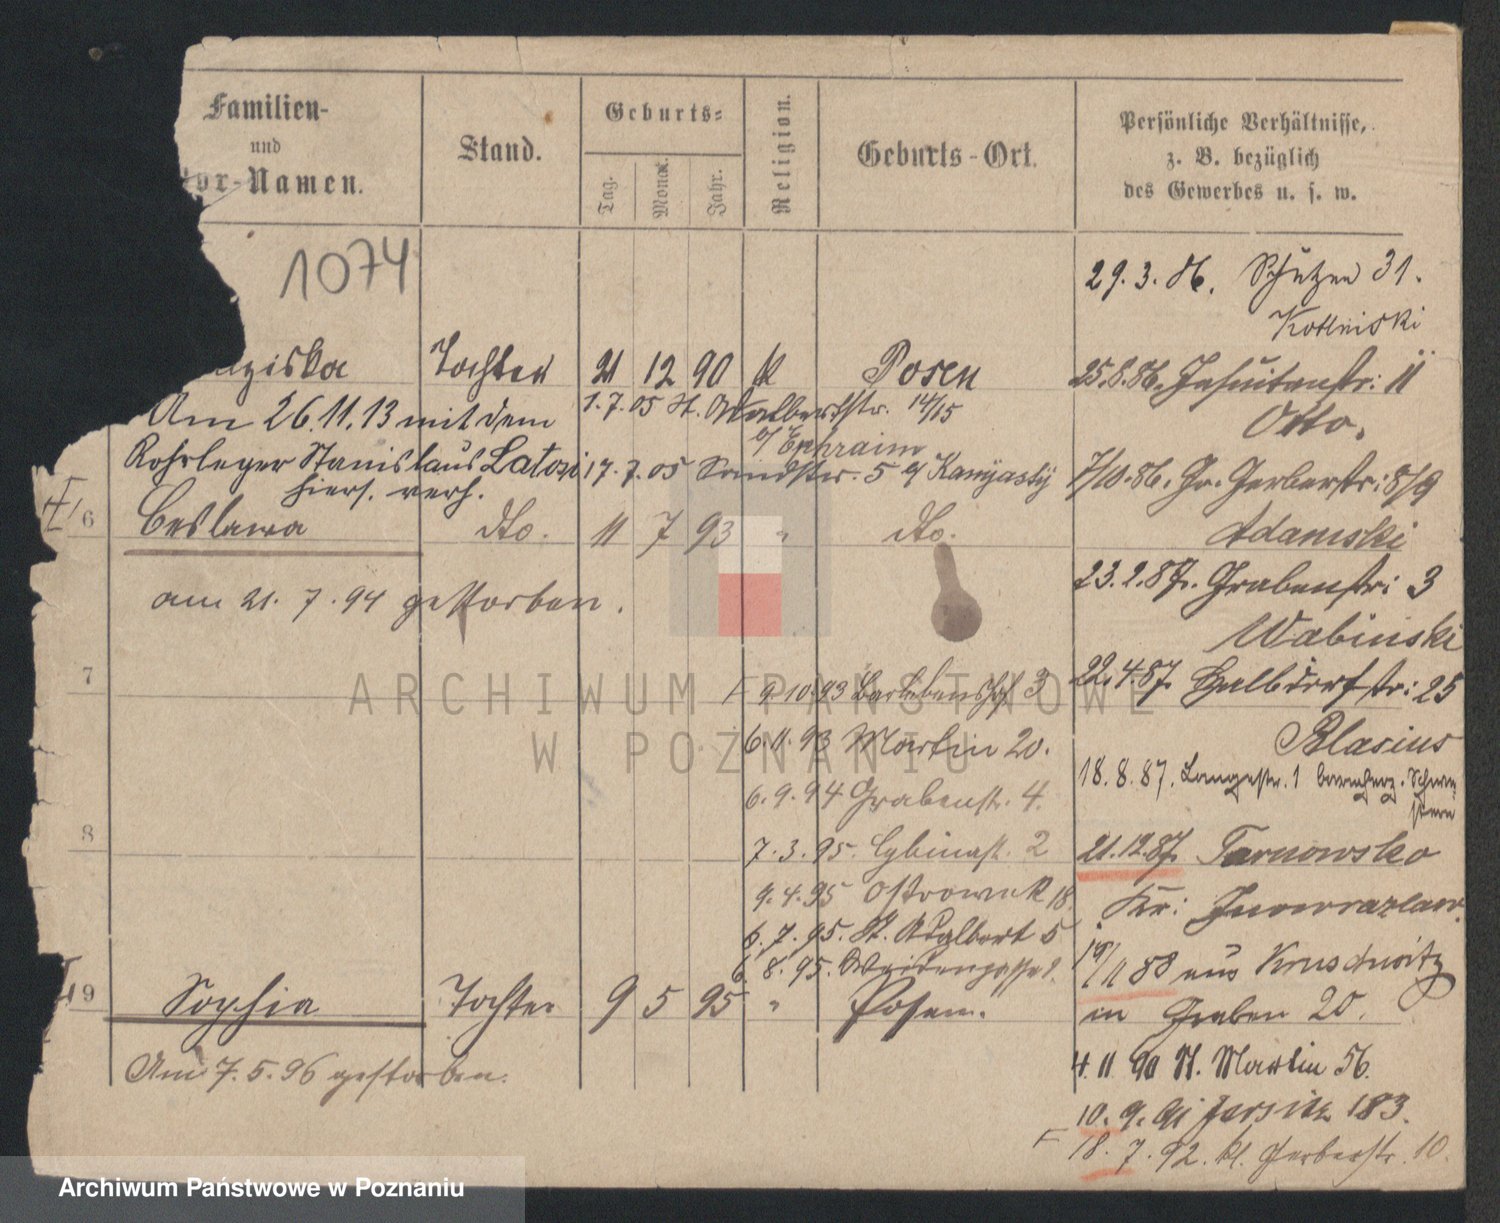 Familien-
und
or-Namen.
Stand.
Geburts-
Tag.
Monat.
Jahr.
Religion.
Geburts-Ort.
Persönliche Verhältnisse,
z. B. bezüglich
des Gewerbes u. s. w.
1074
29. 3. 86. Schützen 31.
ziska Tochter 21 12 90 k Posen
25.8.86. Jesuitenstr: 11
Otto.
Am 26.11.13 mit dem
1.7.05 St. Adalbertstr. 14/15
b/ Ephraim
Rohrleger Stanislaus Latosi
hiers. verh.
17.7.05 Sandstr. 5
7/10.86. Gr. Gerberstr: 8/9
Adamski
6 Ceslawa dto. 11 7 93 " dto.
am 21. 7. 94 gestorben.
23.2.87. Grabenstr: 3
Wabinski
22.4.87. Halbdorfstr: 25
Blasius
7
9.10.93 3
6.11.93 Martin 20.
18.8.87. Langestr. 1 barmherz. Schwe
stern
6.9.94 Grabenstr. 4.
8
7.3.95. Cybinastr. 2
21.12.87. Tarnowko
Kr: Inowrazlaw.
9.4.95 Ostrowek 18.
6.7.95. St. Adalbert 5
6.8.95. Weidengasse
88 aus Kruschwitz
in Graben 20.
9 Sophia Tochter 9 5 95 " Posen.
Am 7.5.96 gestorben.
4. 11. 90 St. Martin 56.
10. 9. 91 Jersitz 183.
18. 7. 92. kl. Gerberstr. 10.
ARCHIWUM PAŃSTWOWE
W POZNANIU
Archiwum Państwowe w Poznaniu